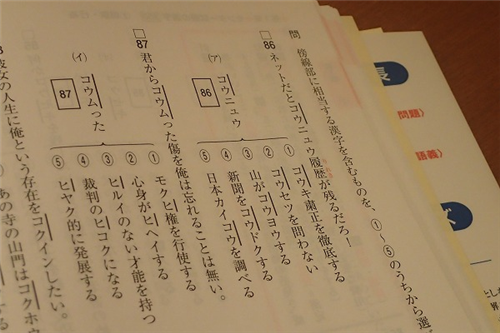 問 傍線部に相当する漢字を含むものを、①〜⑤のうちから選
□86 ネットだとコウニュウ履歴が残るだろ！
(ア) コウニュウ
86
① コウキ粛正を徹底する
② コウセツを問わない
③ 山がコウヨウする
④ 新聞をコウドクする
⑤ 日本カイコウを調べる
□87 君からコウムった傷を俺は忘れることは無い。
(イ) コウムった
87
① モクヒ権を行使する
② 心身がヒヘイする
③ ヒルイのない才能を持つ
④ 裁判のヒコクになる
⑤ ヒヤク的に発展する
彼女の人生に俺という存在をコクインしたい。
あの寺の山門はコクホウ
問題)
語義)